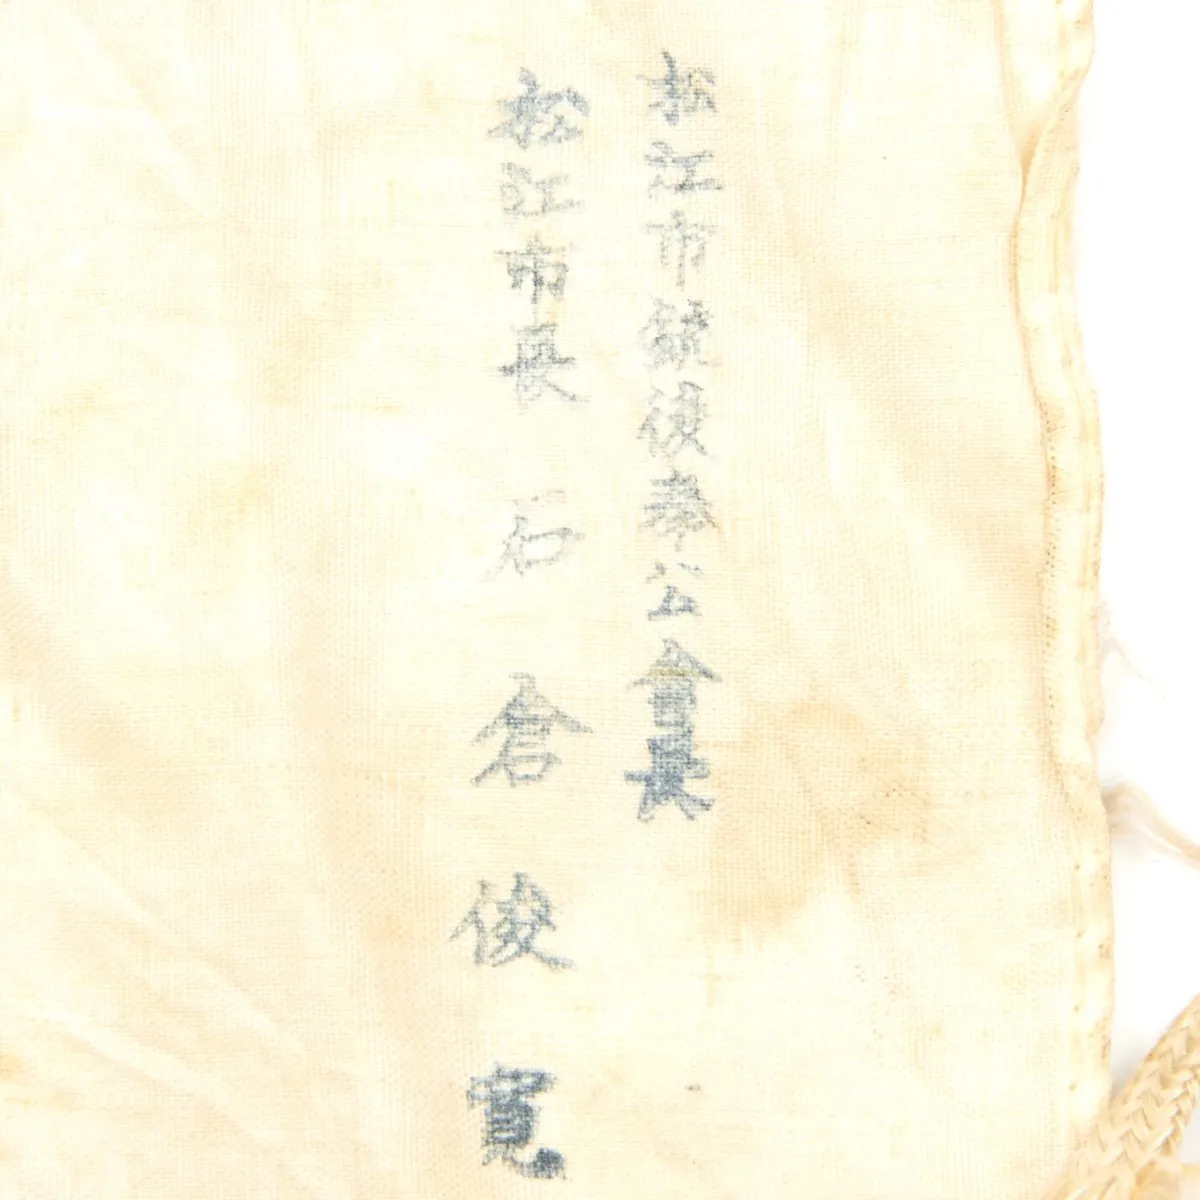 松江市銃後奉公會長
松江市長 石倉俊寛